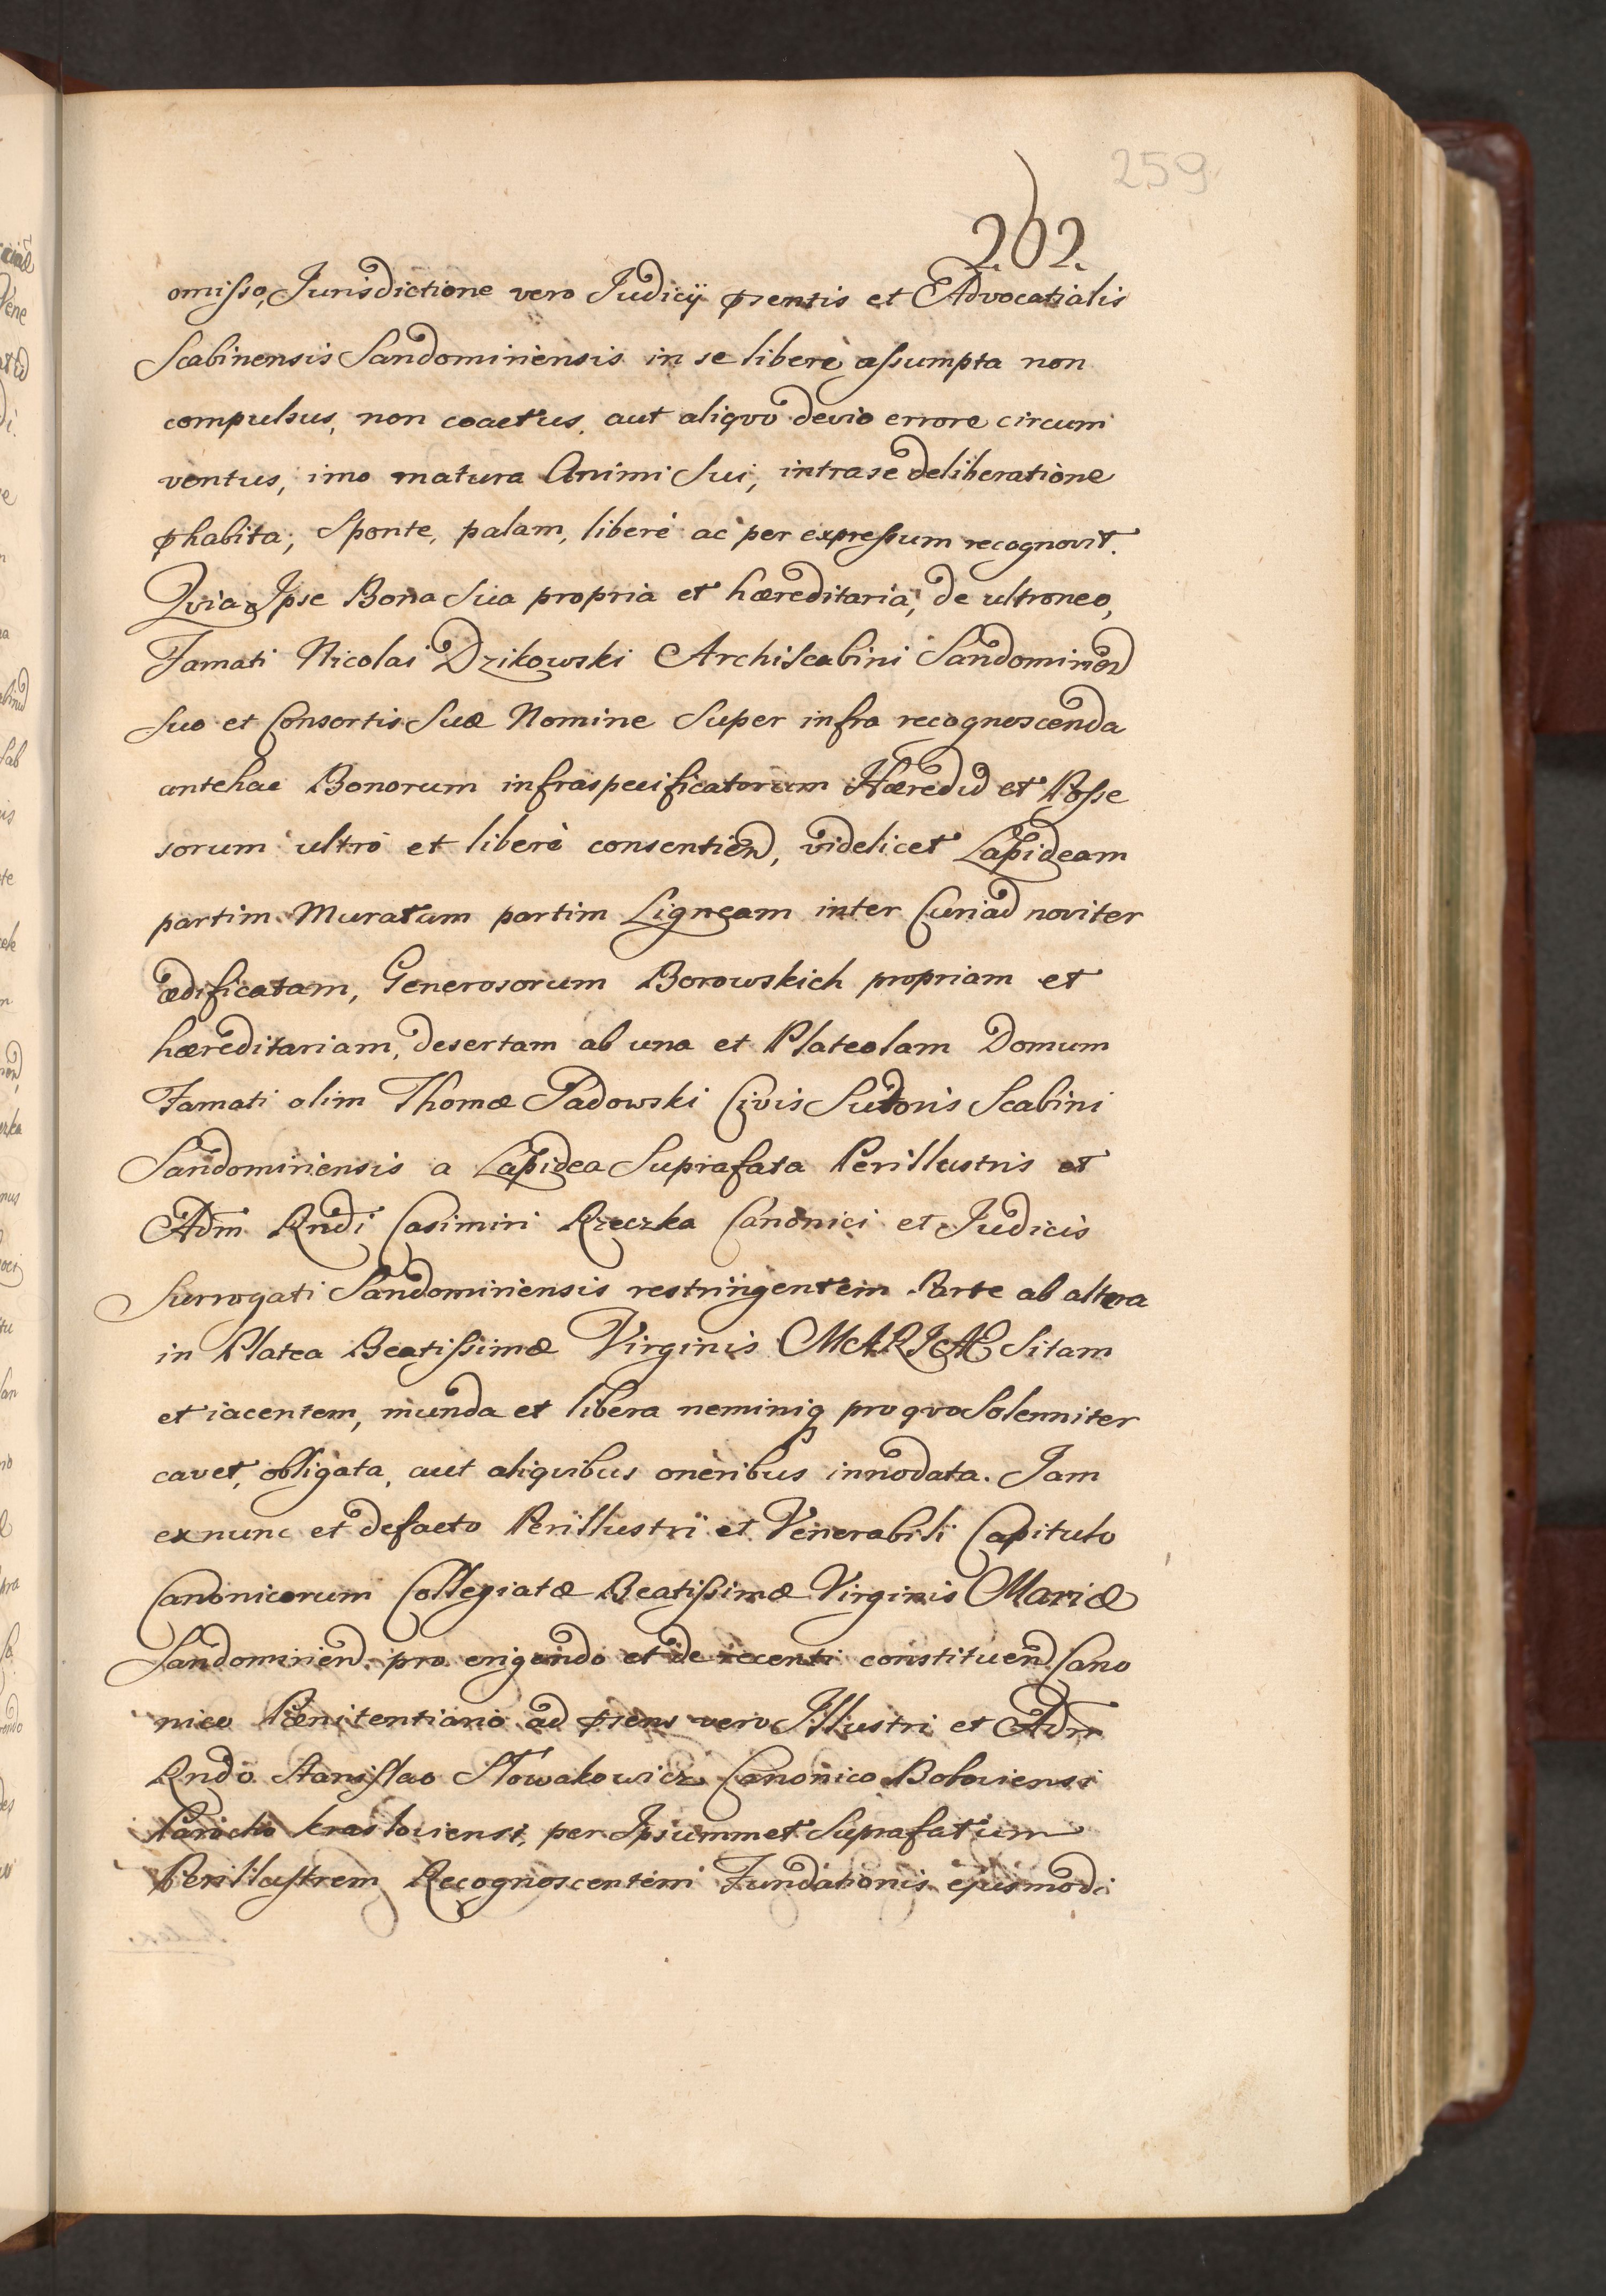 259.
262.
omisso, Jurisdictione vero Judicij prsentis et Advocatialis
Scabinensis Sandomiriensis in se liberè assumpta non
compulsus, non coactus, aut aliqvo devio errore circum
ventus, imo matura Animi Sui, intra se deliberatione
prhabita, Sponte, palam, liberè ac per expressum recognovit.
Qvia Ipse Bona Sua propria et hæreditaria, de ultroneo,
Famati Nicolai Dzikowski ArchiScabini Sandomirien
Suo et Consortis Suæ Nomine Super infra recognoscenda
antehac Bonorum infraspecificatorum Hæredu et Posse
sorum ultrò et liberè consentien, videlicet Lapideam
partim Muratam partim Ligneam inter Curiam noviter
ædificatam, Generosorum Borowskich propriam et
hæreditariam, desertam ab una et Plateolam Domum
Famati olim Thomæ Padowski Civis Sutoris Scabini
Sandomiriensis a Lapidea Suprafata Perillustris et
Adm Rndi Casimiri Rzeczka Canonici et Judicis
Surrogati Sandomiriensis restringentem Parte ab altera
in Platea Beatissimæ Virginis MARIÆ Sitam
et iacentem, munda et libera neminiq pro qvo Solenniter
cavet, obligata, aut aliqvibus oneribus innodata. Jam
ex nunc et defacto Perillustri et Venerabili Capitulo
Canonicorum Collegiatæ Beatissimæ Virginis Mariæ
Sandomirien. pro erigendo et de recenti constituen Cano
nico Pænitentiario ad prsens vero Illustri et Adm
Rndo Stanislao Słowakowicz Canonico Boboviensi
Parocho kraśloviensi, per Ipsummet Suprafatum
Perillustrem Recognoscentem Fundationis ejusmodi